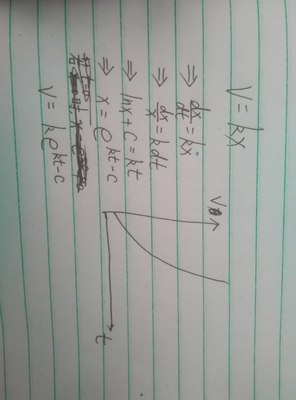 V = kx
⇒ dx/dt = kx
⇒ dx/x = kdt
⇒ lnx + C = kt
⇒ x = e^{kt-c}
V = ke^{kt-c}
V
t